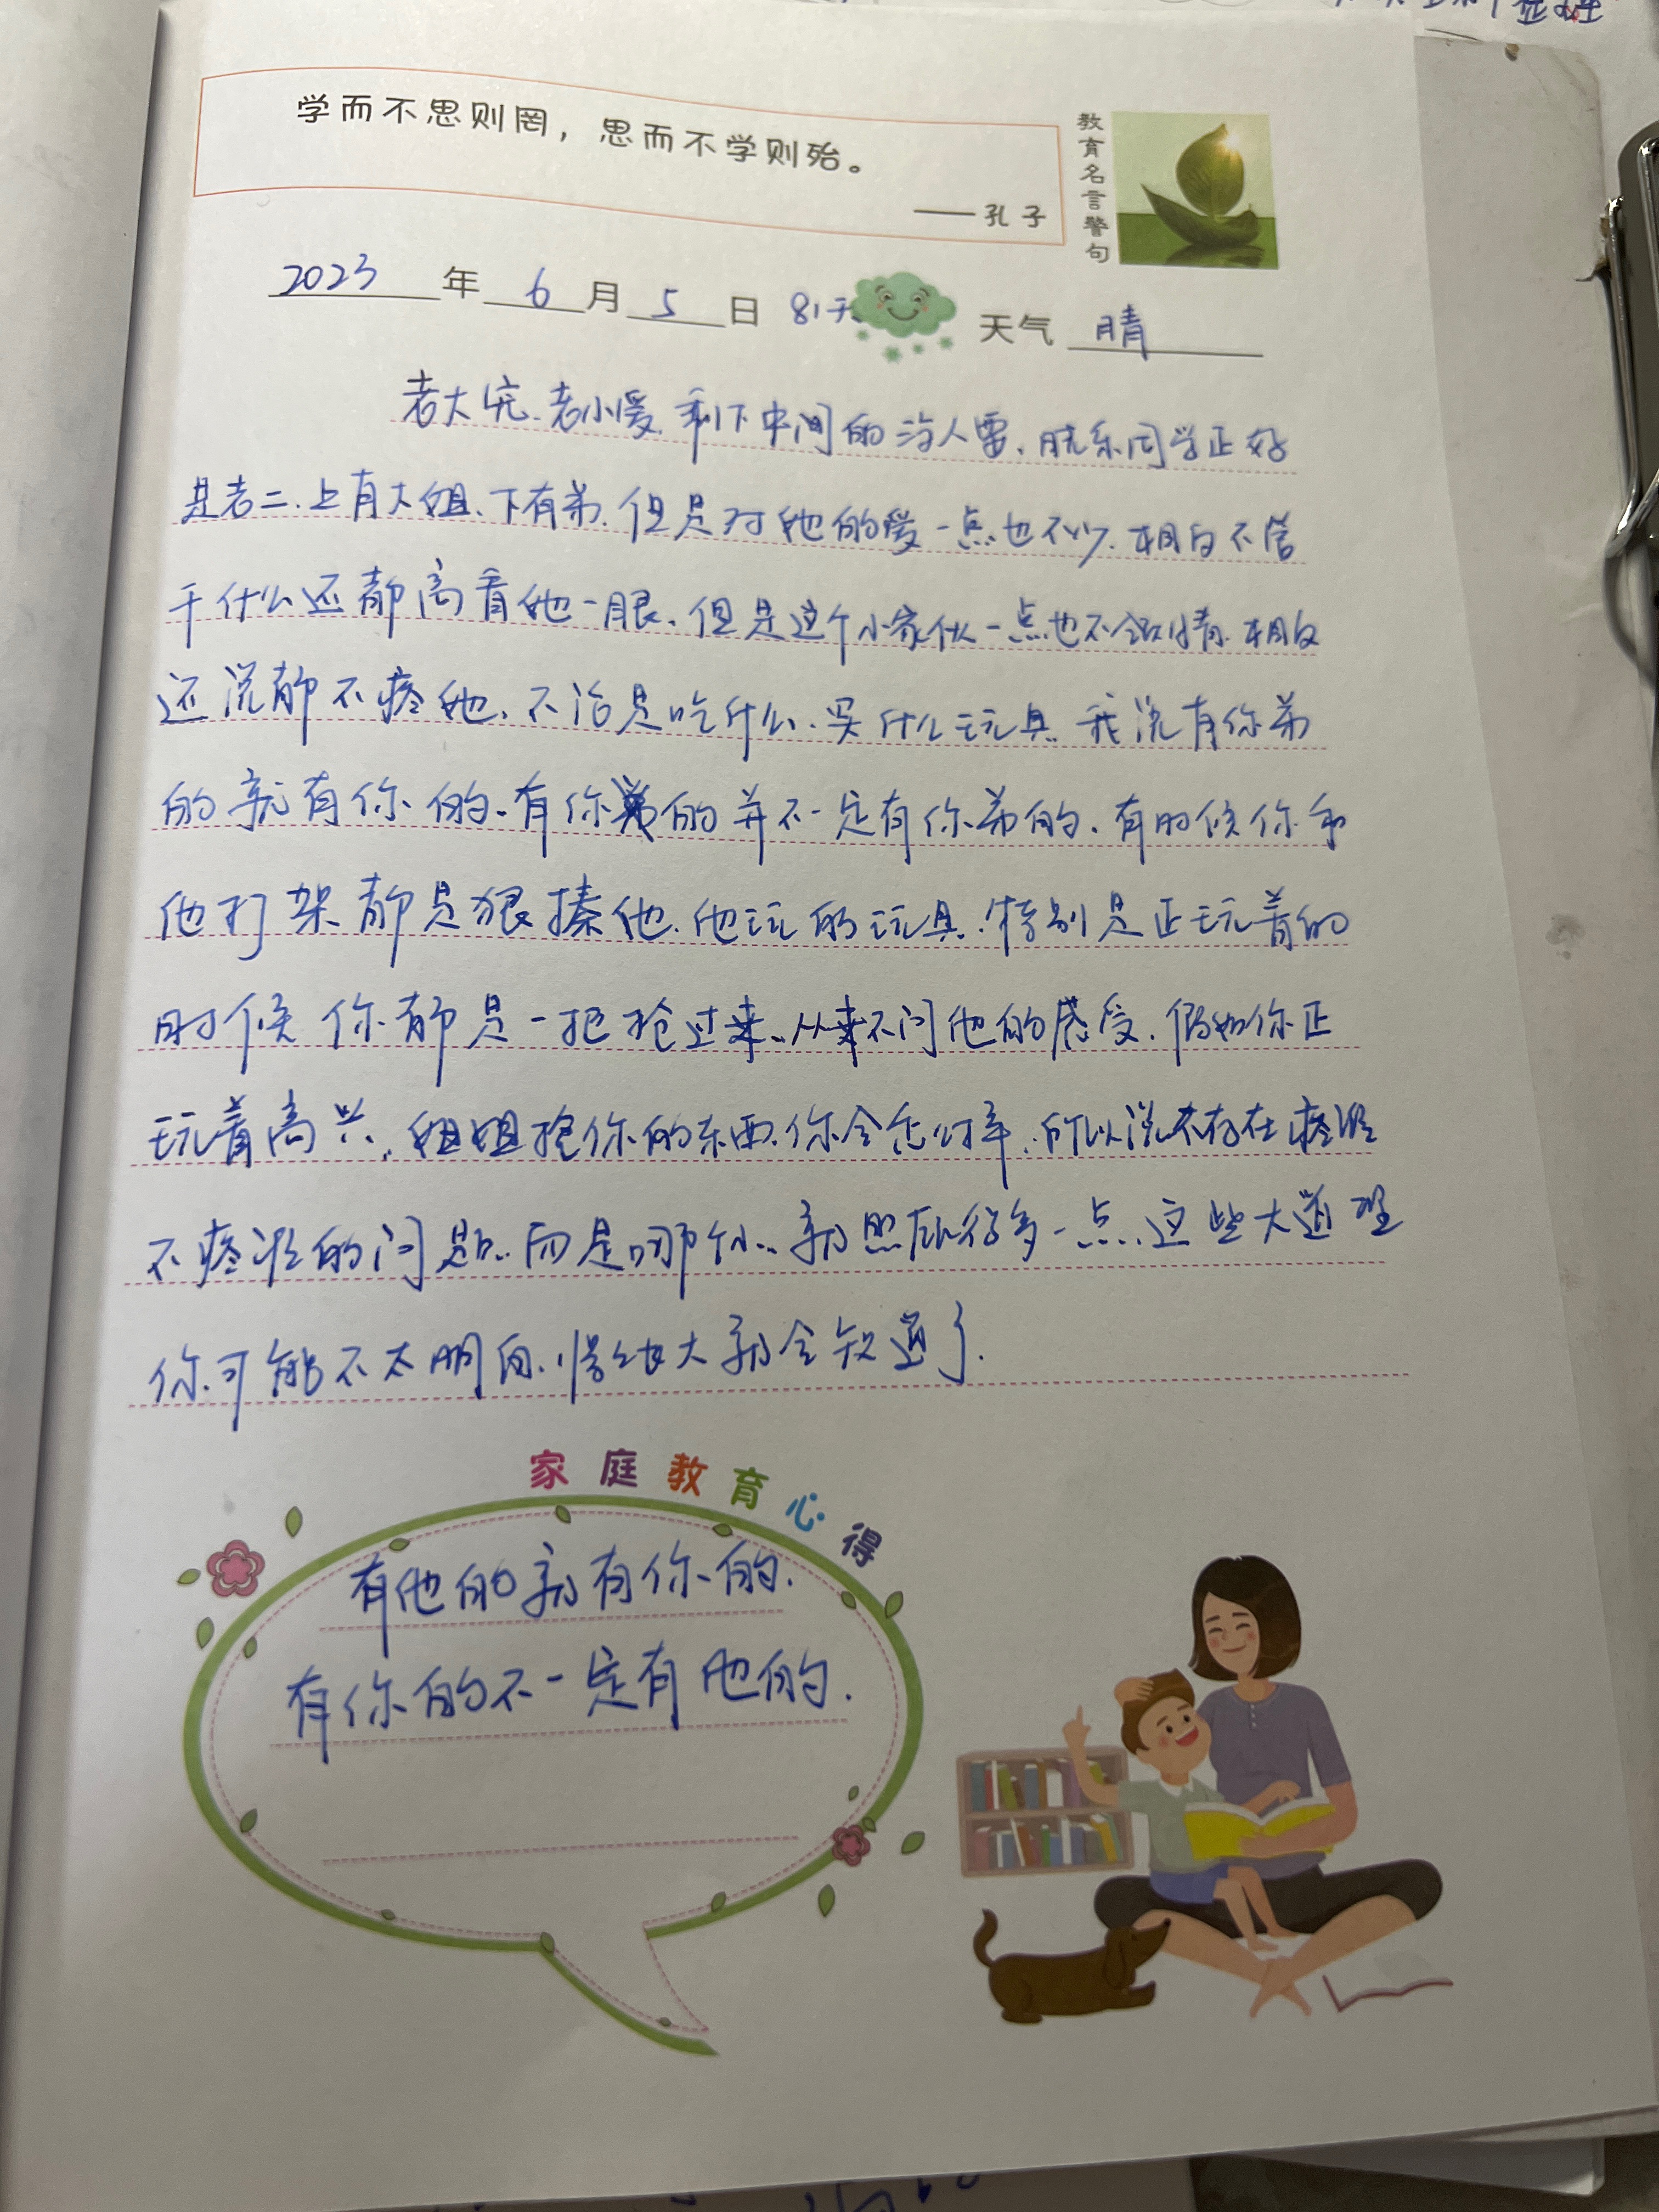 学而不思则罔，思而不学则殆。
——孔子
教育名言警句
2023年6月5日 81天 天气 晴
老大宠.老小爱.剩下中间的没人要.同学正好
是老二.上有大姐.下有弟.但是对她的爱一点也不少.相反不管
干什么还都高看她一眼.但是这个小家伙一点也不领情.相反
还说都不疼她.不论是吃什么.买什么玩具.我说有你弟
的就有你的.有你的并不一定有你弟的.有时候你和
他打架都是狠揍他.他玩的玩具.特别是正玩着的
时候你都是一把抢过来.从来不问他的感受.假如你正
玩着高兴.姐姐抢你的东西.你会怎么样.所以说不存在疼你
不疼你的问题.而是哪个小.就照顾得多一点.这些大道理
你可能不太明白.慢慢地大就会知道了.
家庭教育心得
有他的就有你的.
有你的不一定有他的.